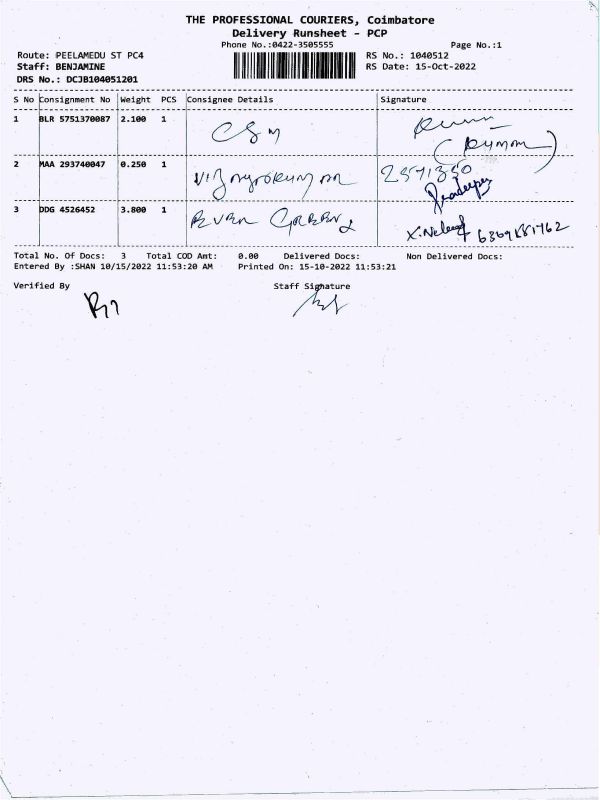 THE PROFESSIONAL COURIERS, Coimbatore
Delivery Runsheet - PCP
Phone No.:0422-3505555 Page No.:1
Route: PEELAMEDU ST PC4 RS No.: 1040512
Staff: BENJAMINE RS Date: 15-Oct-2022
DRS No.: DCJB104051201
S No Consignment No Weight PCS Consignee Details Signature
1 BLR 5751370087 2.100 1 CSM
(Kumar)
2 MAA 293740047 0.250 1
3 DDG 4526452 3.800 1 EVER GREEN
Total No. Of Docs: 3 Total COD Amt: 0.00 Delivered Docs: Non Delivered Docs:
Entered By :SHAN 10/15/2022 11:53:20 AM Printed On: 15-10-2022 11:53:21
Verified By Staff Signature